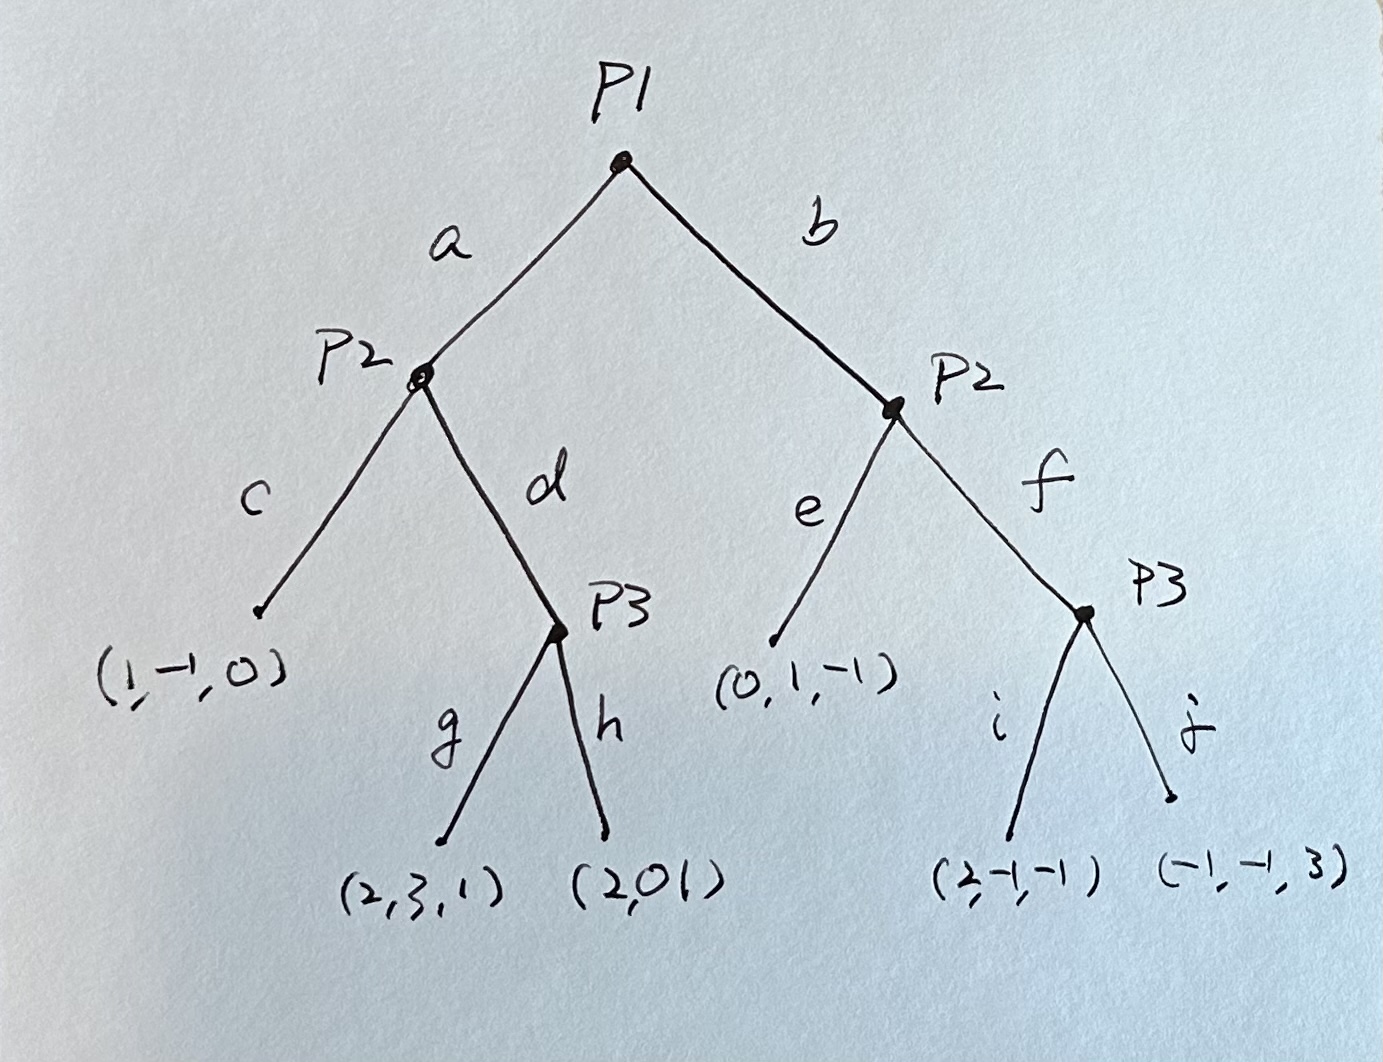 P1
a b
P2 P2
c d e f
P3 P3
(1,-1,0) (0,1,-1)
g h i j
(2,3,1) (2,01) (2,-1,-1) (-1,-1,3)